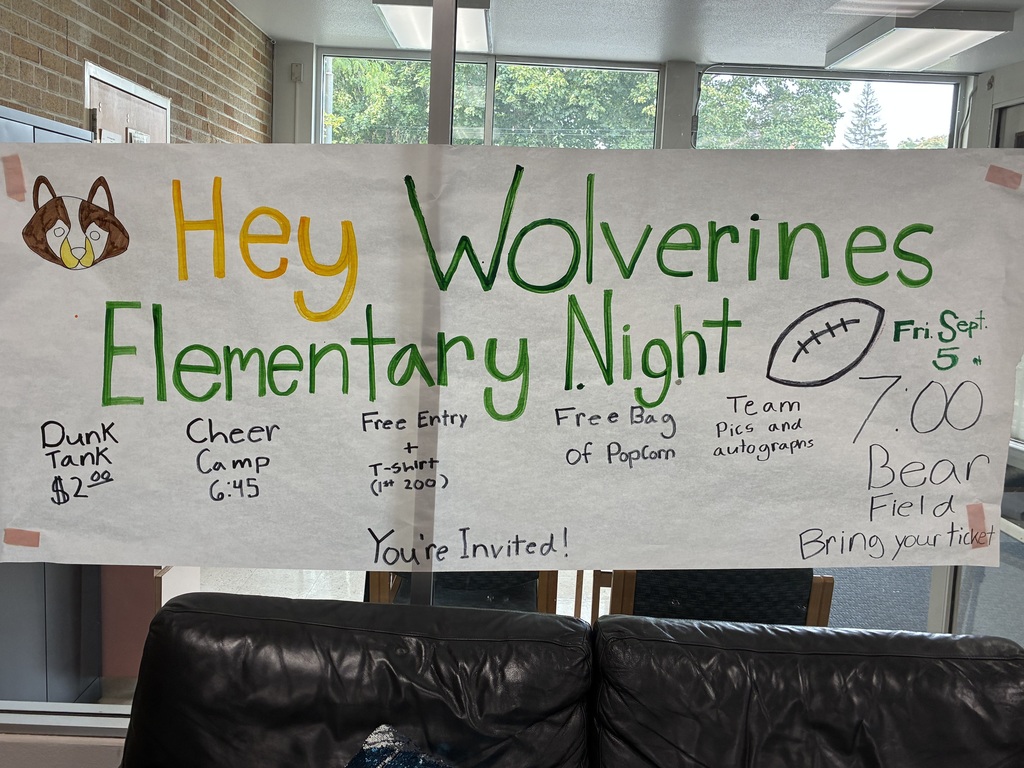 Hey Wolverines
Elementary Night
Fri. Sept.
5th
7:00
Bear
Field
Bring your ticket
Dunk
Tank
$2.00
Cheer
Camp
6:45
Free Entry
+
T-shirt
(1st 200)
Free Bag
Of Popcorn
Team
Pics and
autographs
You're Invited!